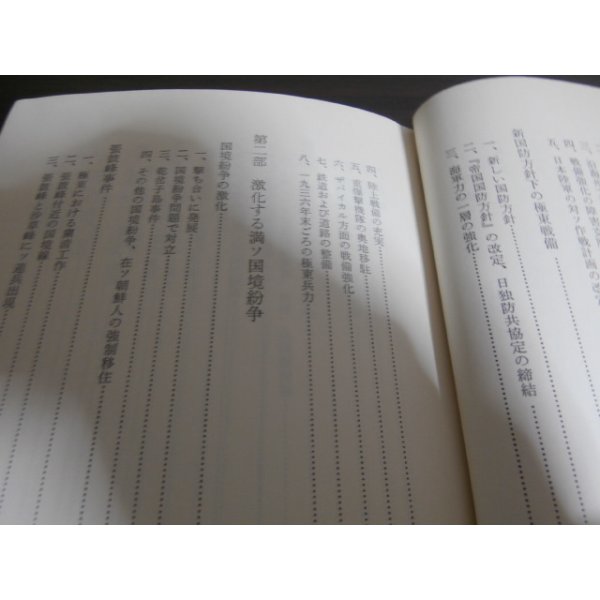 四、戦備
五、日本陸軍の対ソ作戦計画の改
新国防方針下の極東戦備
一、新しい国防方針
二、『帝国国防方針』の改定、日独防共協定の締結
三、海軍力の一層の強化
四、陸上戦備の充実
五、重爆撃機隊の奥地移駐
六、ザバイカル方面の戦備強化
七、鉄道および道路の整備
八、一九三六年末ごろの極東兵力
第二部 激化する満ソ国境紛争
国境紛争の激化
一、撃ち合いに発展
二、国境紛争問題で対立
三、乾岔子島事件
四、その他の国境紛争、在ソ朝鮮人の強制移住
張鼓峰事件
一、極東における粛清工作
二、張鼓峰付近の国境線
三、張鼓峰と沙草峰にソ連兵出現